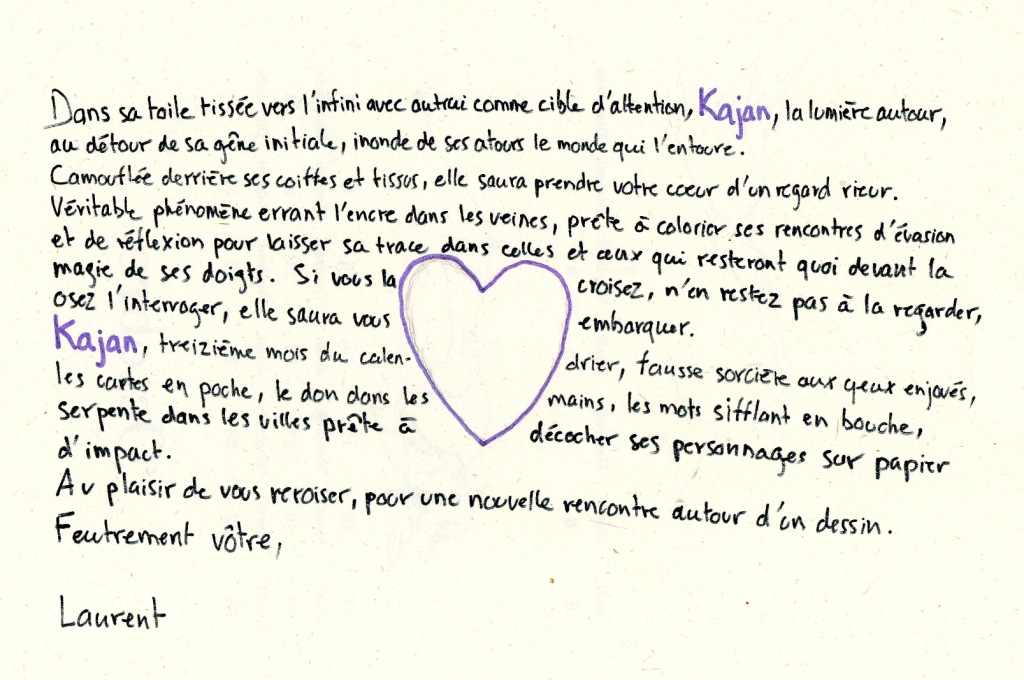 Dans sa toile tissée vers l'infini avec autrui comme cible d'attention, Kajan, la lumière autour,
au détour de sa gêne initiale, inonde de ses atours le monde qui l'entoure.
Camouflée derrière ses coiffes et tissus, elle saura prendre votre cœur d'un regard rieur.
Véritable phénomène errant l'encre dans les veines, prête à colorier ses rencontres d'évasion
et de réflexion pour laisser sa trace dans celles et ceux qui resteront quoi devant la
magie de ses doigts. Si vous la croisez, n'en restez pas à la regarder,
osez l'interroger, elle saura vous embarquer.
Kajan, treizième mois du calen- drier, fausse sorcière aux yeux enjoués,
les cartes en poche, le don dans les mains, les mots sifflant en bouche,
serpente dans les villes prête à décocher ses personnages sur papier
d'impact.
Au plaisir de vous recroiser, pour une nouvelle rencontre autour d'un dessin.
Feutrement vôtre,
Laurent